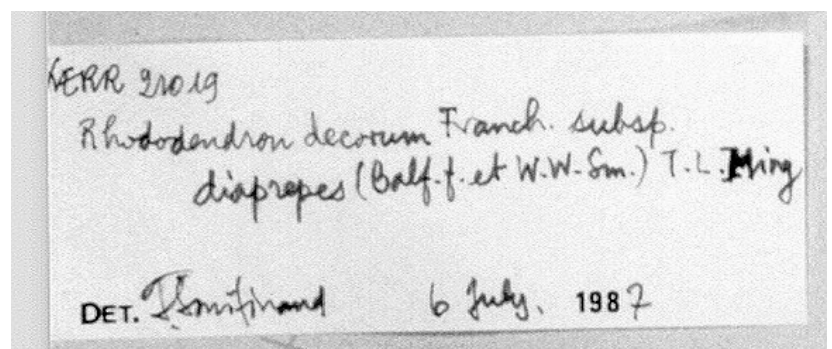 KERR 21019
Rhododendron decorum Franch. subsp.
diaprepes (Balf.f. et W.W.Sm.) T.L.Ming
DET. T. Smitinand 6 July, 1987